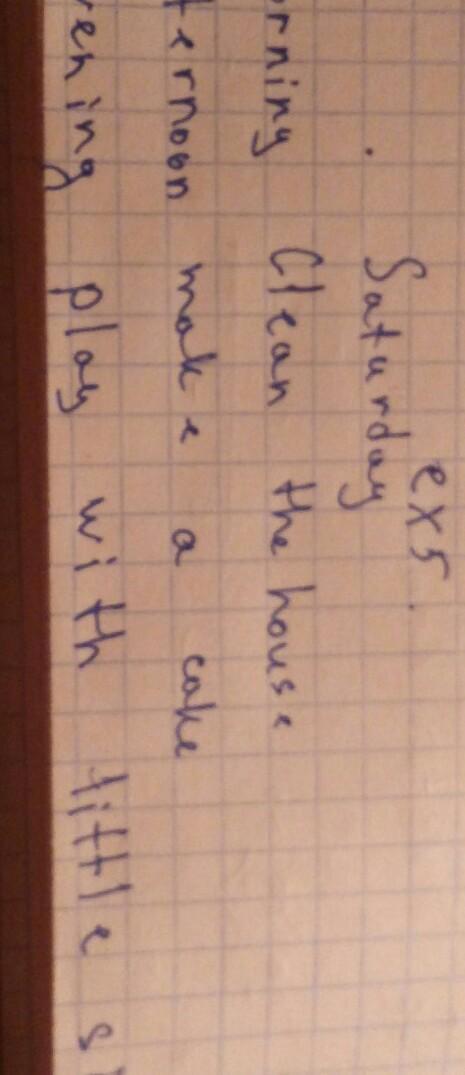 ex5.
Saturday
orning Clean the house
ternoon make a cake
vening play with little s